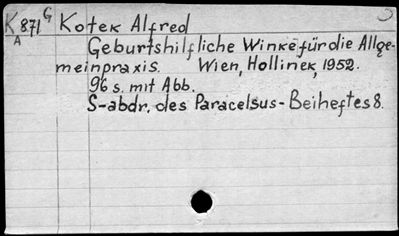 K 871 G Kotek Alfred 5
A Geburtshilfliche Winke für die Allge-
meinpraxis. Wien, Hollinek, 1952.
96 s. mit Abb.
S-abdr. des Paracelsus-Beiheftes 8.